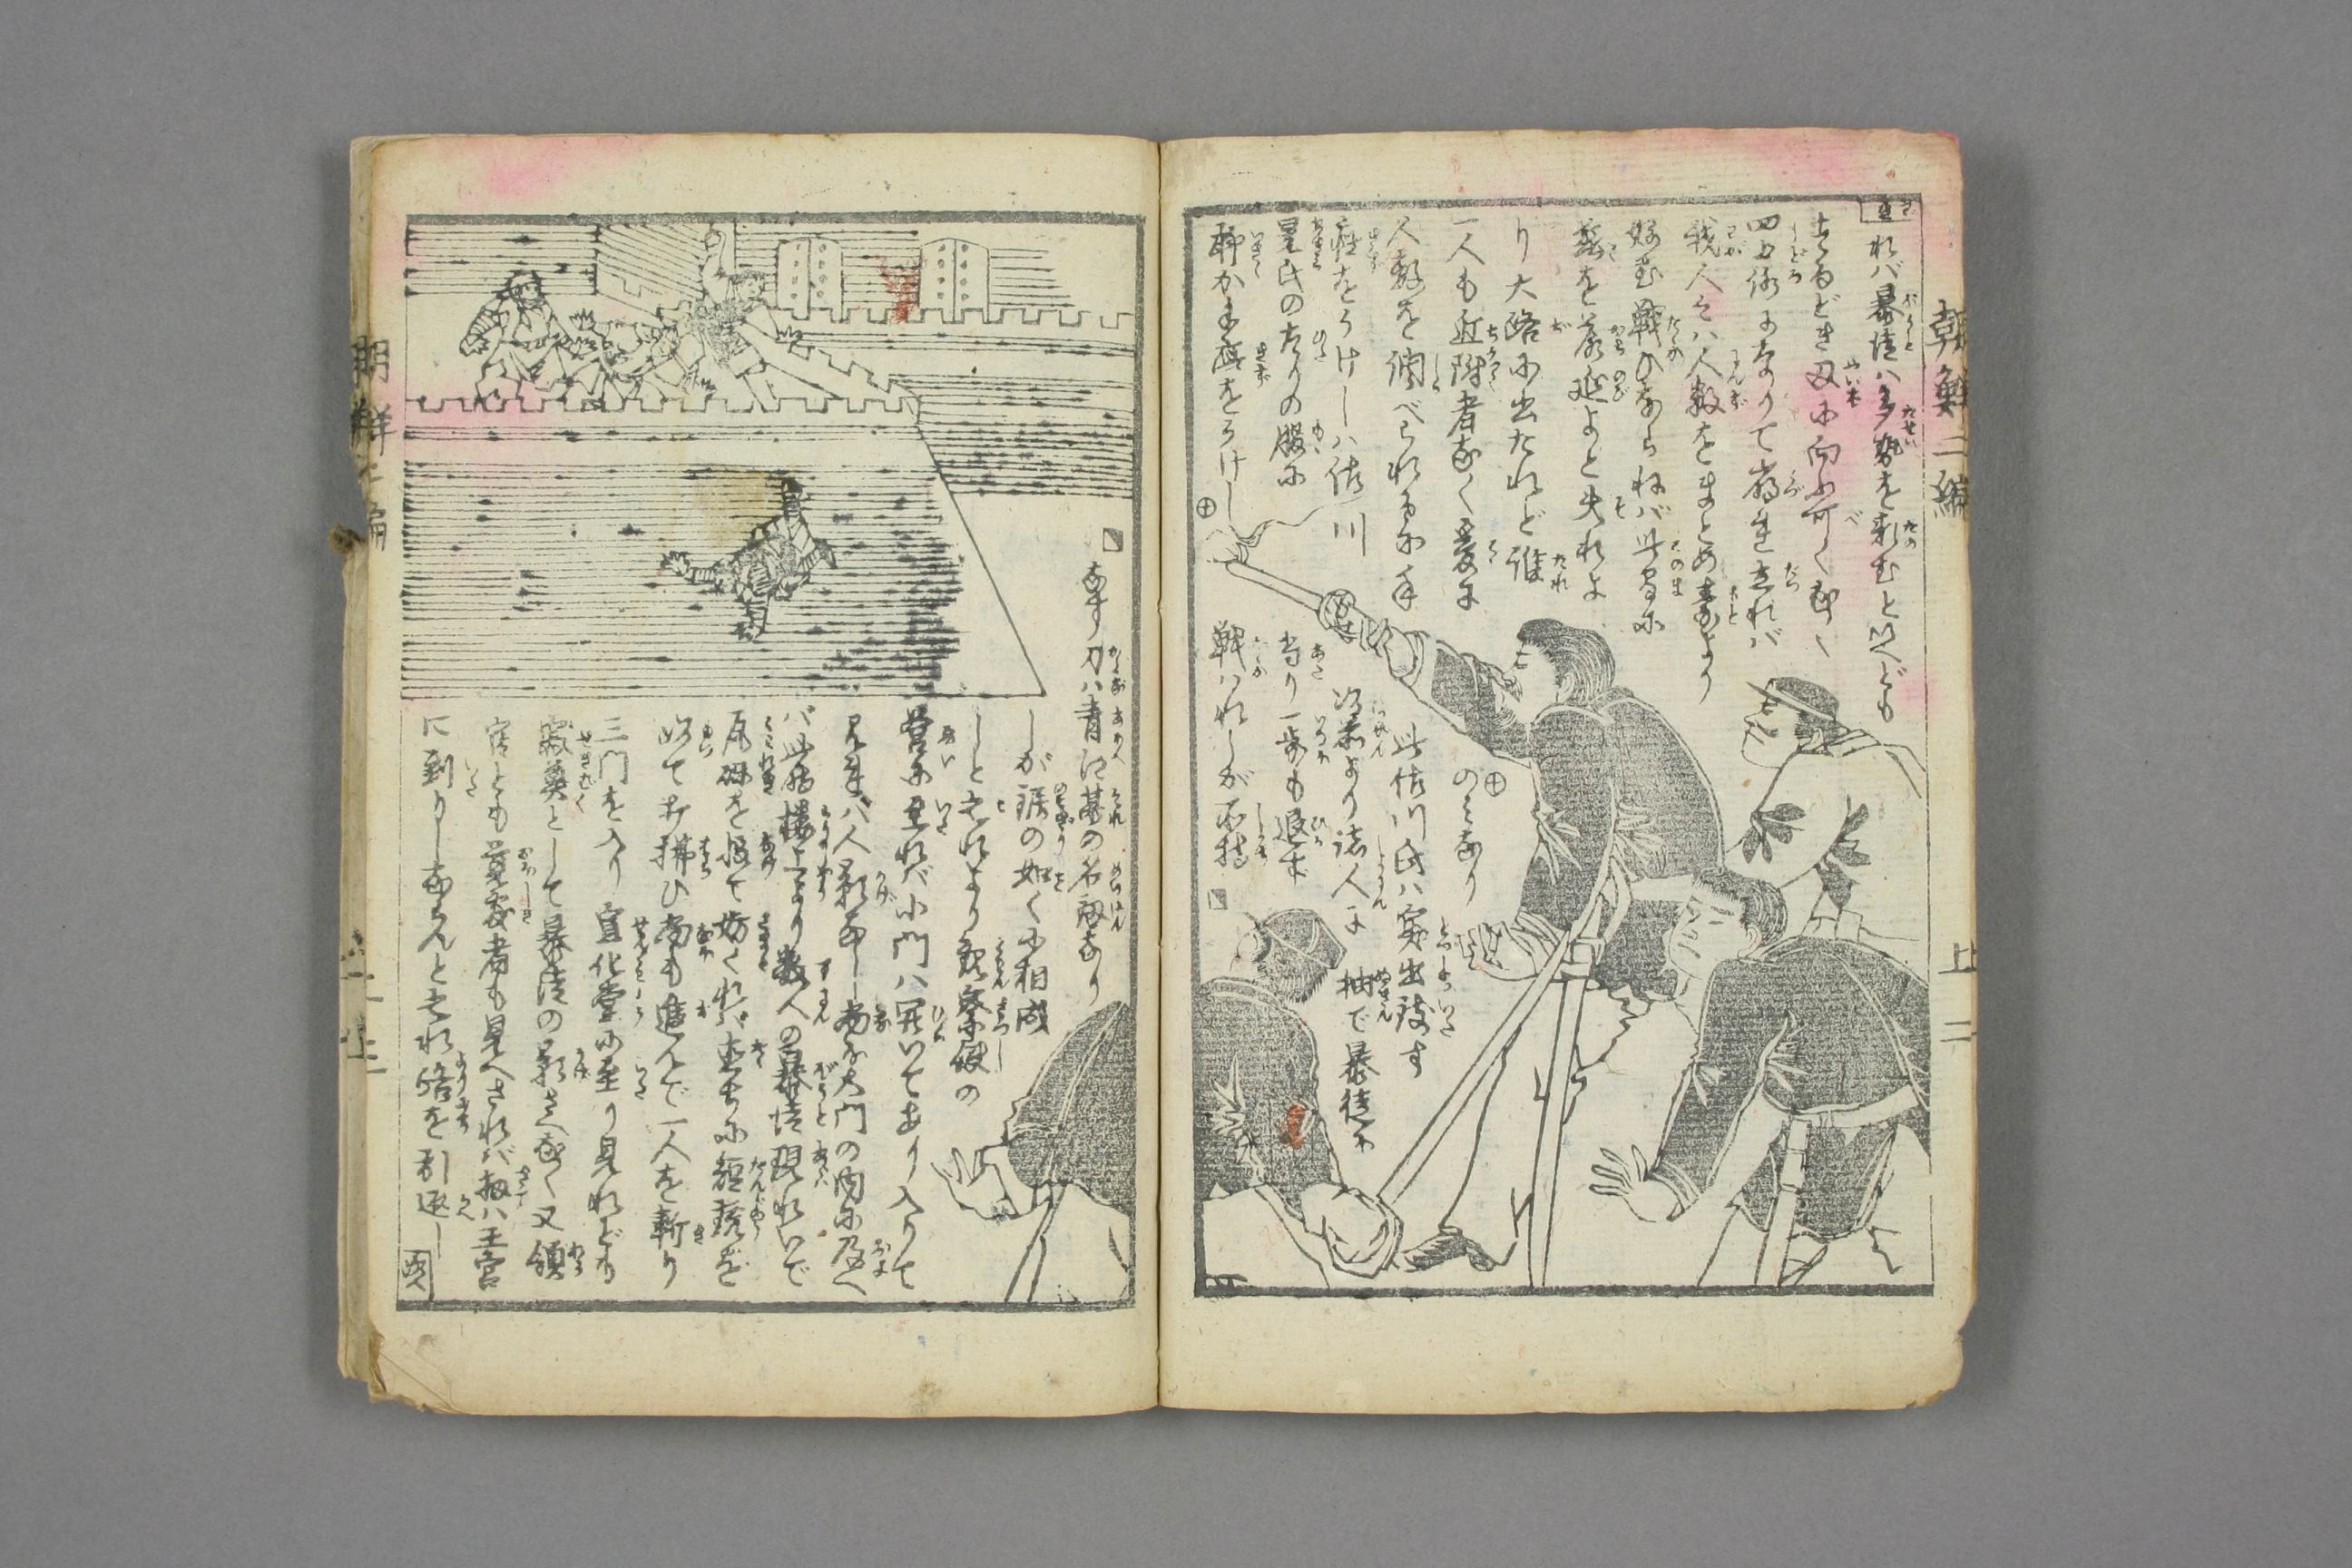 朝鮮二編
上二
れバ暴徒ハ多勢を頼むと以へども
するどき刃に向ふ可くもなく
四五俤になりて崩れ立れバ
我人々ハ人数をまとめ素より
好む戦ひならねバ此間に
落延よと夫れよ
り大路に出たれど誰
一人も近附者なく爰に
人数を調べられるに手
疵をうけしハ佐川
星氏の左りの股に
聊か手疵をうけし
のみなり
此佐川氏ハ突出致す
以前より諸人に
抽で暴徒に
当り一歩も退かず
戦ハれしが所持
なす刀ハ青江の名劔なり
しが鋸の如くに相成
しと夫れより観察使の
営に至れバ小門ハ開いてあり入りて
見れバ人影なし尚ほ大門の内に及べ
バ此時楼上より数人の暴徒現れいで
瓦礫を投て妨ぐれバ直ちに短銃を
放て打拂ひ尚も進んで一人を斬り
三門を入り宣化堂に至り見れども
寂寞として暴徒の影さへなく又領
官とも覚敷者も見へされバ扨ハ王宮
に到りしならんと夫れより路を引返し
朝鮮二編